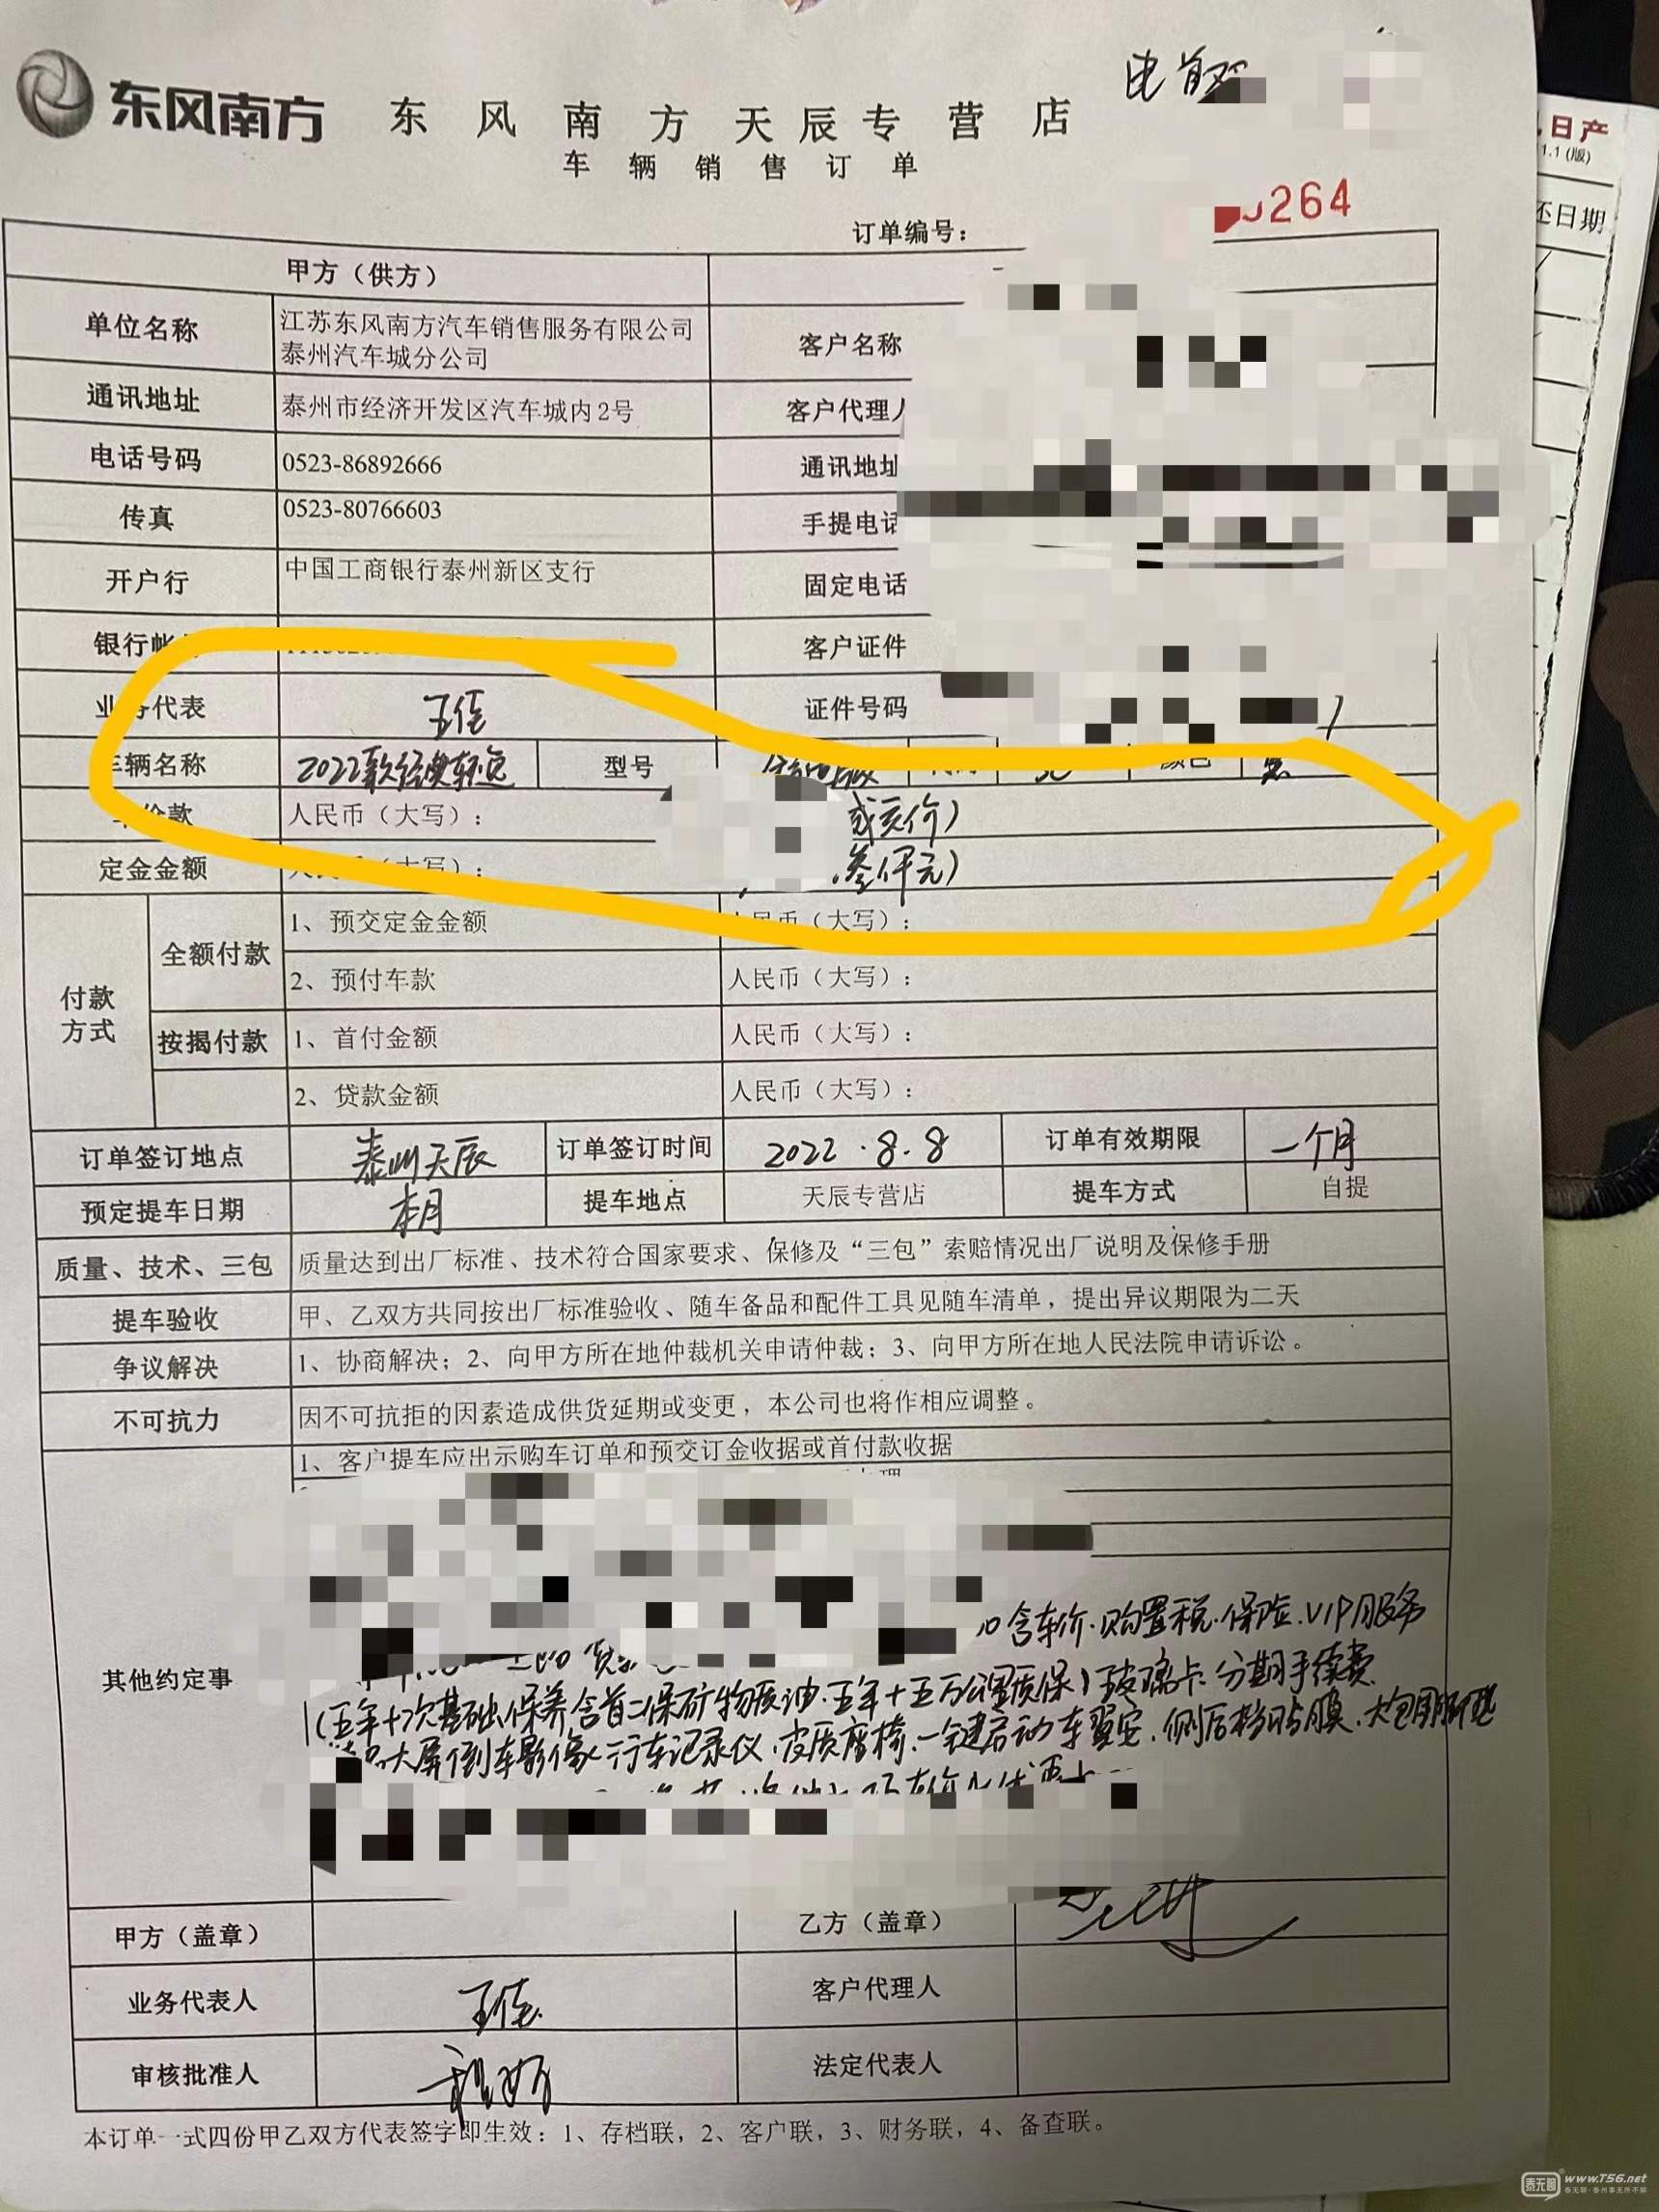 东风南方 东风南方天辰专营店
车辆销售订单
日产
1.1(版)
还日期
订单编号： 264
甲方（供方）
单位名称 江苏东风南方汽车销售服务有限公司 泰州汽车城分公司 客户名称
通讯地址 泰州市经济开发区汽车城内2号 客户代理人
电话号码 0523-86892666 通讯地址
传真 0523-80766603 手提电话
开户行 中国工商银行泰州新区支行 固定电话
银行帐 客户证件
业务代表 王佳 证件号码
车辆名称 2022款经典轩逸 型号
人民币（大写）： 成交价）
定金金额 人民币（大写）： 叁仟元）
付款方式 全额付款 1、预交定金金额 人民币（大写）：
2、预付车款 人民币（大写）：
按揭付款 1、首付金额 人民币（大写）：
2、贷款金额 人民币（大写）：
订单签订地点 泰州天辰 订单签订时间 2022.8.8 订单有效期限 一个月
预定提车日期 本月 提车地点 天辰专营店 提车方式 自提
质量、技术、三包 质量达到出厂标准、技术符合国家要求、保修及“三包”索赔情况出厂说明及保修手册
提车验收 甲、乙双方共同按出厂标准验收、随车备品和配件工具见随车清单，提出异议期限为二天
争议解决 1、协商解决；2、向甲方所在地仲裁机关申请仲裁；3、向甲方所在地人民法院申请诉讼。
不可抗力 因不可抗拒的因素造成供货延期或变更，本公司也将作相应调整。
1、客户提车应出示购车订单和预交订金收据或首付款收据
其他约定事
含车价.购置税.保险.VIP服务
(五年十次基础保养含首二保矿物质油.五年十五万公里质保)玻璃卡 分期手续费
大屏倒车影像 行车记录仪.皮质座椅.一键启动 侧后档贴膜.大包围
甲方（盖章） 乙方（盖章）
业务代表人 王佳 客户代理人
审核批准人 法定代表人
本订单一式四份甲乙双方代表签字即生效：1、存档联，2、客户联，3、财务联，4、备查联。
泰无聊 www.T56.net
泰无聊·泰州事无所不聊